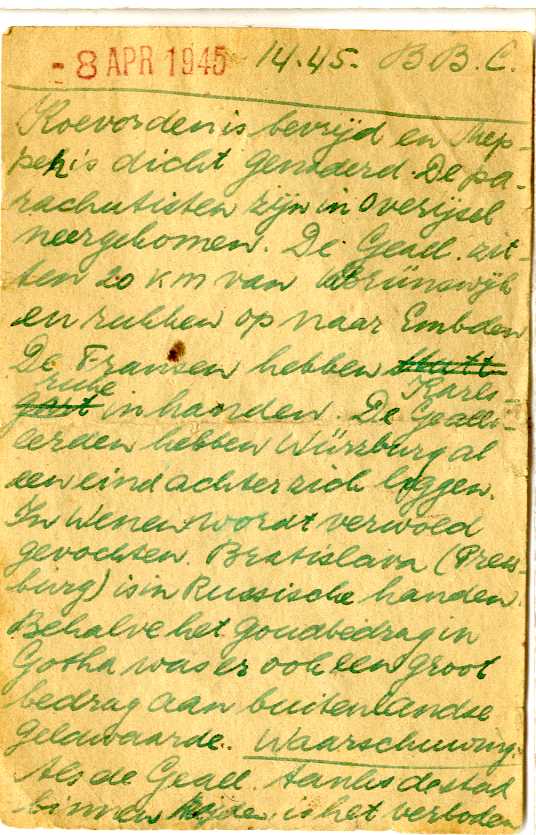 - 8 APR 1945 14.45. B.B.C.
Koevorden is bevrijd en Mep-
pen is dicht genaderd. De pa-
rachutisten zijn in Overijsel
neergekomen. De Geall. zit-
ten 20 km van Brünswijk
en rukken op naar Embden
De Fransen hebben Stutt Karls-
gart ruhe in handen. De Gealli-
eerden hebben Würzburg al
een eind achter zich liggen.
In Wenen wordt verwoed
gevochten. Bratislava (Press-
burg) is in Russische handen.
Behalve het goudbedrag in
Gotha was er ook een groot
bedrag aan buitenlandse
geldwaarde. Waarschuwing:
Als de Geall. tanks de stad
binnen rijden, is het verboden